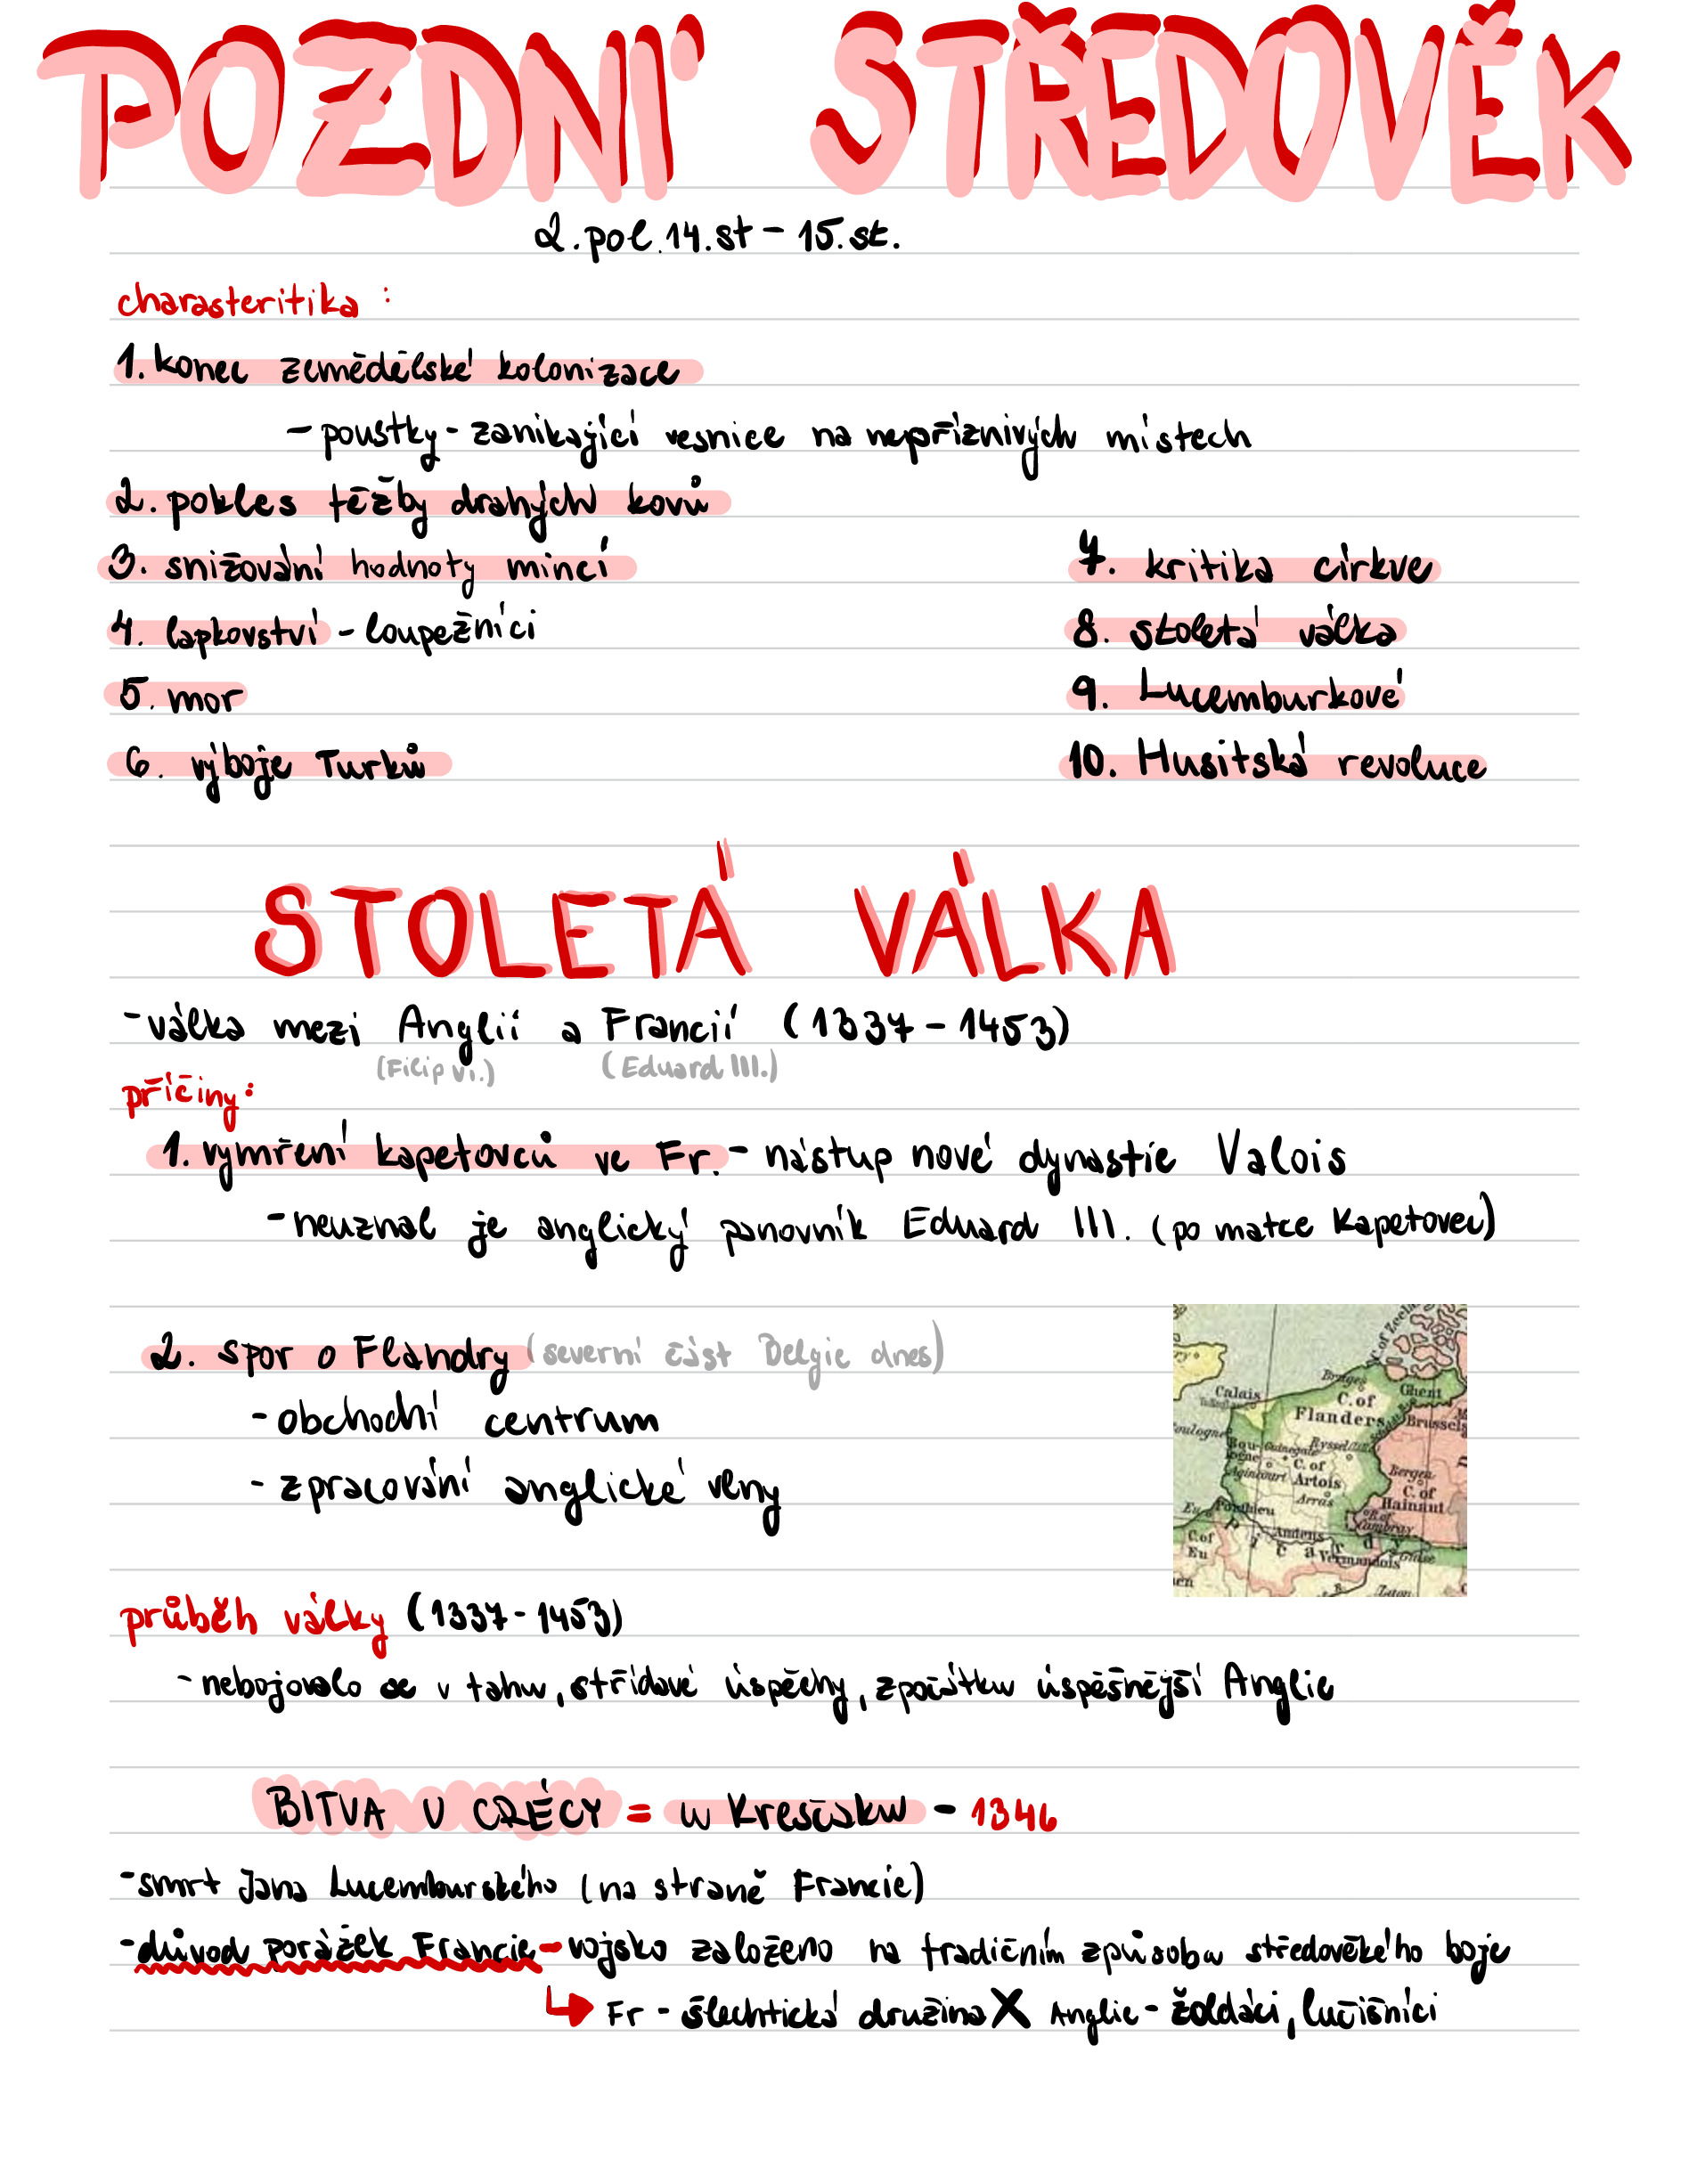 POZDNÍ STŘEDOVĚK
2.pol.14.st - 15.st.
charasteritika :
1. konec zemědělské kolonizace
- poustky - zanikající vesnice na nepříznivých místech
2. pokles těžby drahých kovů
3. snižování hodnoty mincí
4. lapkovství - loupežníci
5. mor
6. výboje Turků
7. kritika církve
8. stoletá válka
9. Lucemburkové
10. Husitská revoluce
STOLETÁ VÁLKA
- válka mezi Anglií a Francií (1337 - 1453)
(Filip VI.) (Eduard III.)
příčiny:
1. vymření kapetovců ve Fr. - nástup nové dynastie Valois
- neuznal je anglický panovník Eduard III. (po matce Kapetovec)
2. spor o Flandry (severní část Belgie dnes)
- obchodní centrum
- zpracování anglické vlny
C. of Zeel
Bruges
Calais
C. of
Ghent
Flanders
Brussels
oulogne
Bou-
logne
Guinegate
Ryssel
C. of
Agincourt
Artois
Bergen
C. of
Arras
Hainaut
Eu
Ponthieu
Cambray
Amiens
C. of
Eu
Picardy
Vermandois
Guise
průběh války (1337 - 1453)
- nebojovalo se v tahu, střídavé úspěchy, zpočátku úspěšnější Anglie
BITVA U CRÉCY = u Kresčaku - 1346
- smrt Jana Lucemburského (na straně Francie)
- důvod porážek Francie - vojsko založeno na tradičním způsobu středověkého boje
↳ Fr - šlechtická družina X Anglie - žoldáci, lučišníci